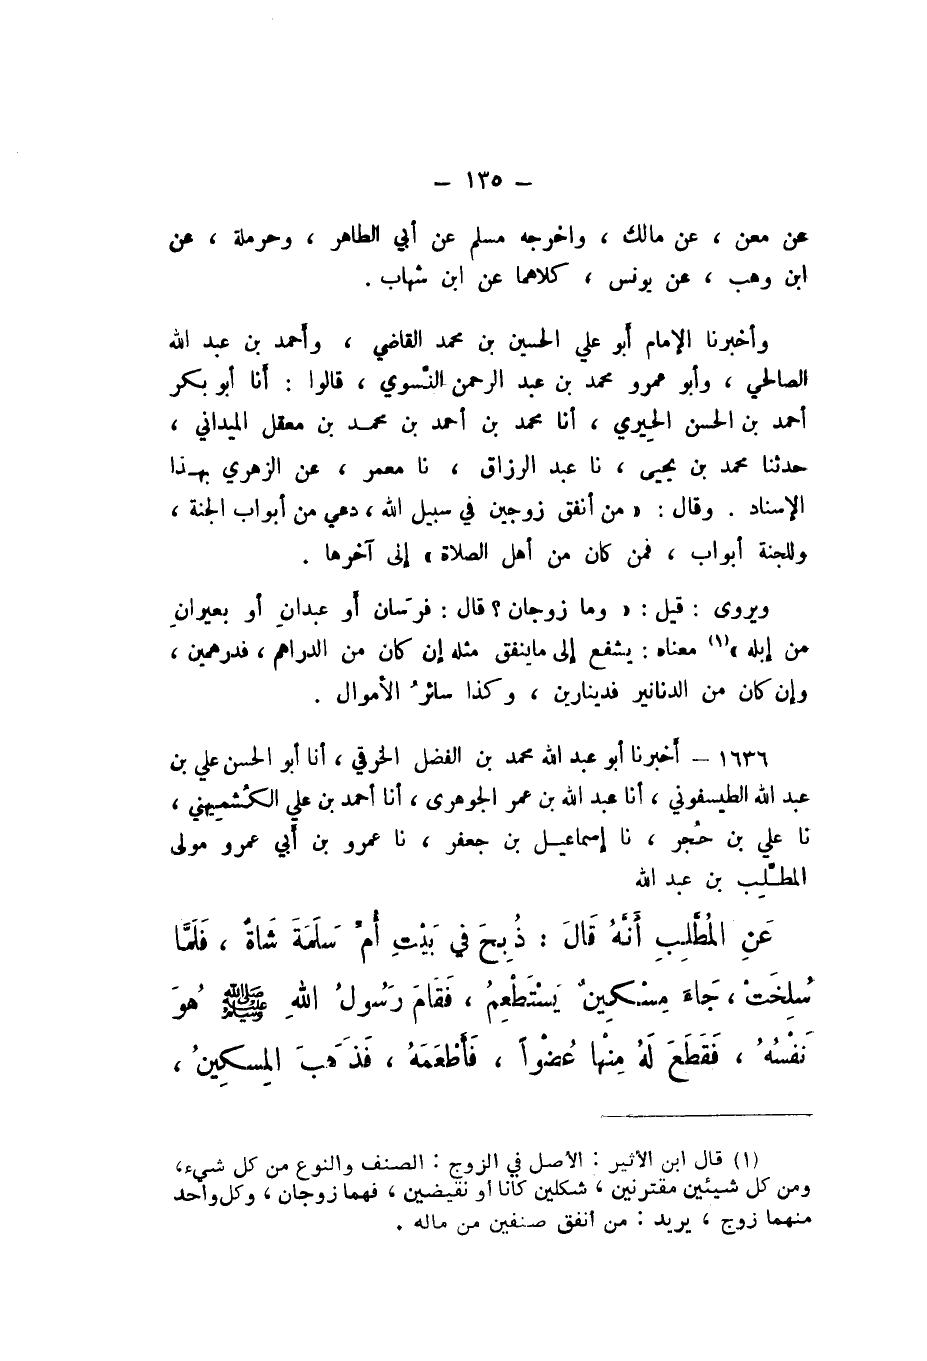 – ١٣٥ –
عن معن ، عن مالك ، واخرجه مسلم عن أبي الطاهر ، وحرملة ، عن
ابن وهب ، عن يونس ، كلاهما عن ابن شهاب .
وأخبرنا الإمام أبو علي الحسين بن محمد القاضي ، وأحمد بن عبد الله
الصالحي ، وأبو عمرو محمد بن عبد الرحمن النَّسوي ، قالوا : أنا أبو بكر
أحمد بن الحسن الحِيري ، أنا محمد بن أحمد بن محمد بن معقل الميداني ،
حدثنا محمد بن يحيى ، نا عبد الرزاق ، نا معمر ، عن الزهري بهذا
الإسناد . وقال : « من أنفق زوجين في سبيل الله ، دعي من أبواب الجنة ،
وللجنة أبواب ، فمن كان من أهل الصلاة » إلى آخرها .
ويروى : قيل : « وما زوجان ؟ قال : فرسَان أو عبدانِ أو بعيرانِ
من إبله »(١) معناه : يشفع إلى ماينفق مثله إن كان من الدراهم ، فدرهمين ،
وإن كان من الدنانير فدينارين ، وكذا سائرُ الأموال .
١٦٣٦ – أخبرنا أبو عبد الله محمد بن الفضل الخرقي ، أنا أبو الحسن علي بن
عبد الله الطيسفوني ، أنا عبد الله بن عمر الجوهري ، أنا أحمد بن علي الكُشمِيهني ،
نا علي بن حُجر ، نا إسماعيل بن جعفر ، نا عمرو بن أبي عمرو مولى
المطَّلِب بن عبد الله
عَنِ المُطَّلِبِ أَنَّهُ قَالَ : ذُبِحَ في بَيْتِ أُمِّ سَلَمَةَ شَاةٌ ، فَلَمَّا
سُلِخَتْ ، جَاءَ مِسْكِينٌ يَسْتَطْعِمُ ، فَقَامَ رَسُولُ اللهِ ﷺ هُوَ
نَفْسُهُ ، فَقَطَعَ لَهُ مِنْها عُضْواً ، فَأَطْعَمَهُ ، فَذَهَبَ المِسكِينُ ،
(١) قال ابن الأثير : الأصل في الزوج : الصنف والنوع من كل شيء،
ومن كل شيئين مقترنين ، شكلين كانا أو نقيضين ، فهما زوجان ، وكل واحد
منهما زوج ، يريد : من أنفق صنفين من ماله .